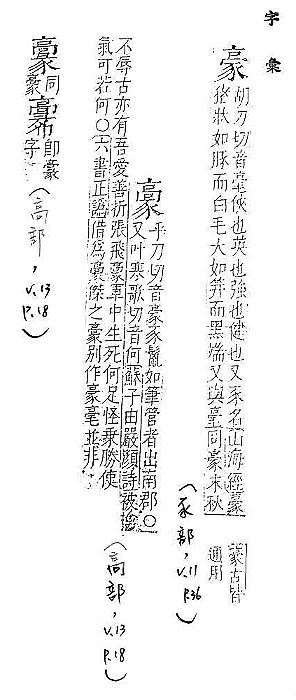 字彙
豪
胡刀切音毫俠也英也強也健也又豕名山海經豪
彘狀如豚而白毛大如笄而黑端又與毫同豪末秋
豪古皆
通用
(豕部, v.11 P.36)
乎刀切音豪豕鬣如筆管者出南郡○
又叶寒歌切音何蘇子由嚴顏詩被擒
不辱古亦有吾愛善折張飛豪軍中生死何足怪乘勝使
氣可若何○六書正譌借為豪傑之豪別作豪毫並非
(高部, v.13 P.18)
同豪
即豪字
(高部, v.13 P.18)